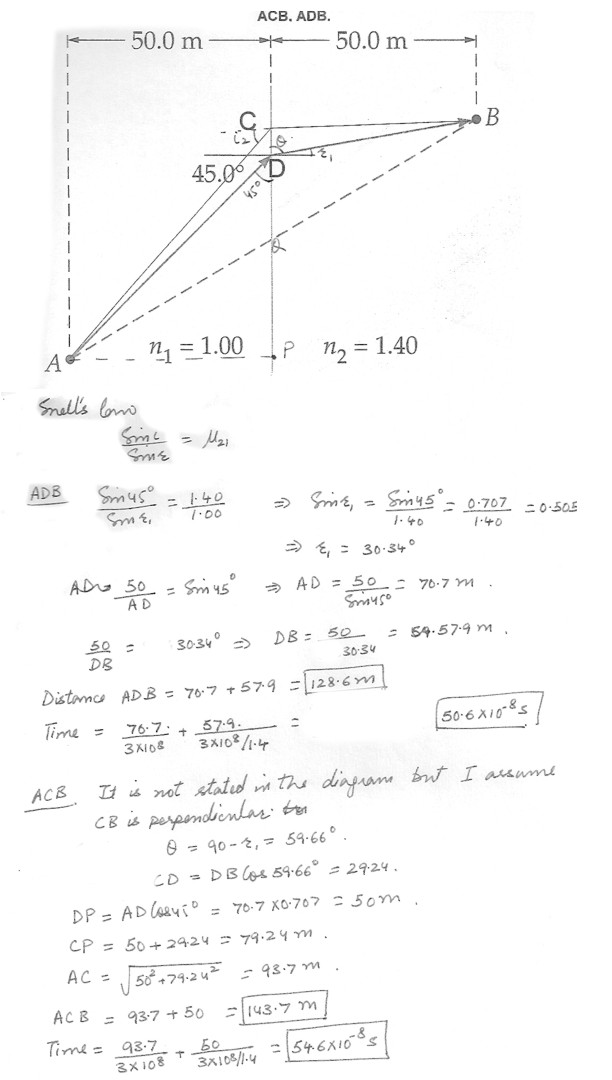 ACB. ADB.
50.0 m 50.0 m
C B
i2 θ
45.0° D r1
45°
Q
A n1 = 1.00 P n2 = 1.40
Snell's law
Sin i / Sin r = μ21
ADB Sin 45° / Sin r1 = 1.40 / 1.00 ⇒ Sin r1 = Sin 45° / 1.40 = 0.707 / 1.40 = 0.505
⇒ r1 = 30.34°
AD 50 / AD = Sin 45° ⇒ AD = 50 / Sin 45° = 70.7 m.
50 / DB = 30.34° ⇒ DB = 50 / 30.34 = 57.9 m.
Distance ADB = 70.7 + 57.9 = 128.6 m
Time = 70.7 / 3×10^8 + 57.9 / 3×10^8/1.4 = 50.6×10^-8 s
ACB. It is not stated in the diagram but I assume
CB is perpendicular.
θ = 90 - r1 = 59.66°.
CD = DB Cos 59.66° = 29.24.
DP = AD Cos 45° = 70.7 × 0.707 = 50 m.
CP = 50 + 29.24 = 79.24 m.
AC = √50² + 79.24² = 93.7 m.
ACB = 93.7 + 50 = 143.7 m
Time = 93.7 / 3×10^8 + 50 / 3×10^8/1.4 = 54.6×10^-8 s